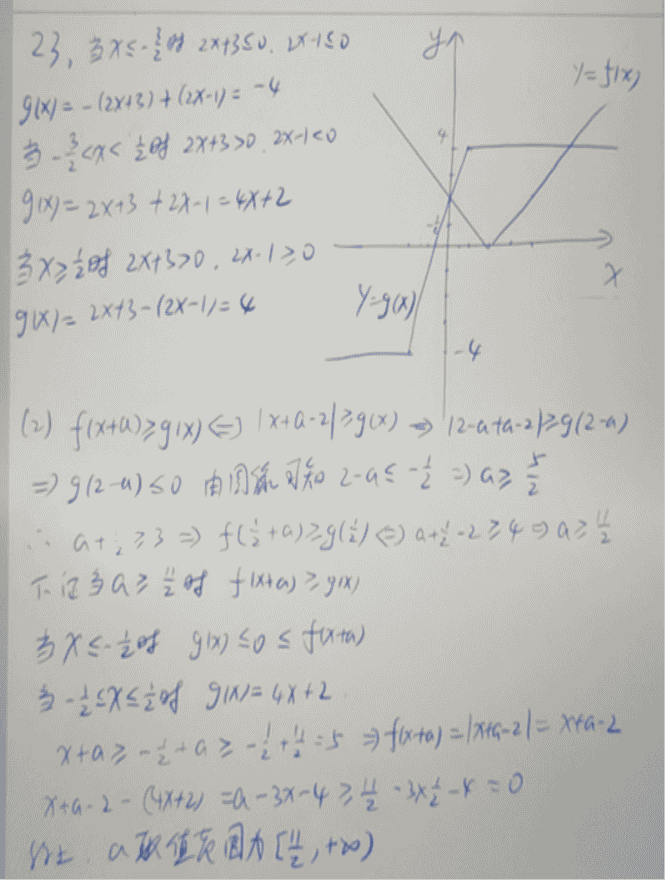 23, 当x≤-3/2时 2x+3≤0, 2x-1≤0
g(x)=-(2x+3)+(2x-1)=-4
当-3/2<x<1/2时 2x+3>0, 2x-1<0
g(x)=2x+3+2x-1=4x+2
当x≥1/2时 2x+3>0, 2x-1≥0
g(x)=2x+3-(2x-1)=4
y
y=f(x)
4
-1/2
x
y=g(x)
-4
(2) f(x+a)≥g(x)⇔|x+a-2|≥g(x) ⇒ |2-a+a-2|≥g(2-a)
⇒g(2-a)≤0 由图像可知 2-a≤-1/2 ⇒a≥5/2
∴ a+1/2≥3 ⇒ f(1/2+a)≥g(1/2)⇔a+1/2-2≥4⇒a≥11/2
下证当a≥11/2时 f(x+a)≥g(x)
当x≤-1/2时 g(x)≤0≤f(x+a)
当-1/2≤x≤1/2时 g(x)=4x+2
x+a≥-1/2+a≥-1/2+11/2=5 ⇒f(x+a)=|x+a-2|=x+a-2
x+a-2-(4x+2)=a-3x-4≥11/2-3×1/2-4=0
综上, a取值范围为[11/2,+∞)